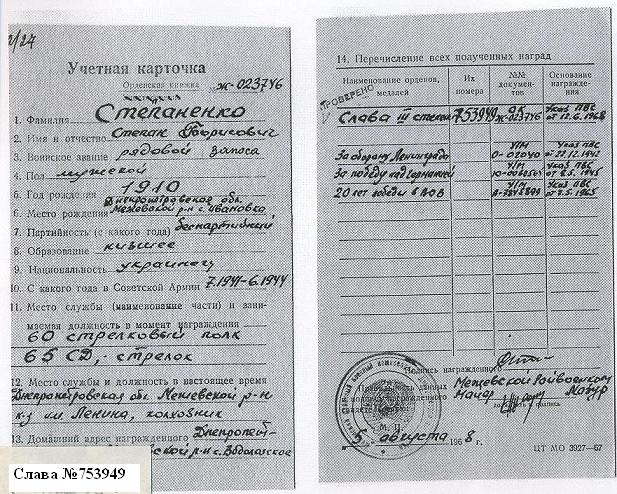 2/27
Учетная карточка
Орденская книжка Ж-023746
1. Фамилия Степаненко
2. Имя и отчество Степан Борисович
3. Воинское звание рядовой запаса
4. Пол мужской
5. Год рождения 1910
Днепропетровская обл.
6. Место рождения Межевской р-н с. Ивановка
7. Партийность (с какого года) беспартийный
8. Образование низшее
9. Национальность украинец
10. С какого года в Советской Армии 7.1941-6.1944
11. Место службы (наименование части) и зани-
маемая должность в момент награждения
60 стрелковый полк
65 СД, - стрелок
12. Место службы и должность в настоящее время
Днепропетровская обл. Межевской р-н
к-з им. Ленина, колхозник
13. Домашний адрес награжденного Днепропет-
р-н с. Водолазское
Слава №753949
14. Перечисление всех полученных наград
Наименование орденов, медалей
Их номера
№№ документов
Основание награждения
ПРОВЕРЕНО
Слава III степени 753949 ОК Ж-023746 Указ ПВС от 12.6.1968
За оборону Ленинграда Указ ПВС от 22.12.1942
За победу над Германией Указ ПВС от 9.5.1945
20 лет победы в ВОВ Указ ПВС от 7.5.1965
Подпись награжденного
Правильность данных
Межевской Райвоенком
Мазур
и подпись
М. П.
5 августа 1968 г.
ЦТ МО 3927—67